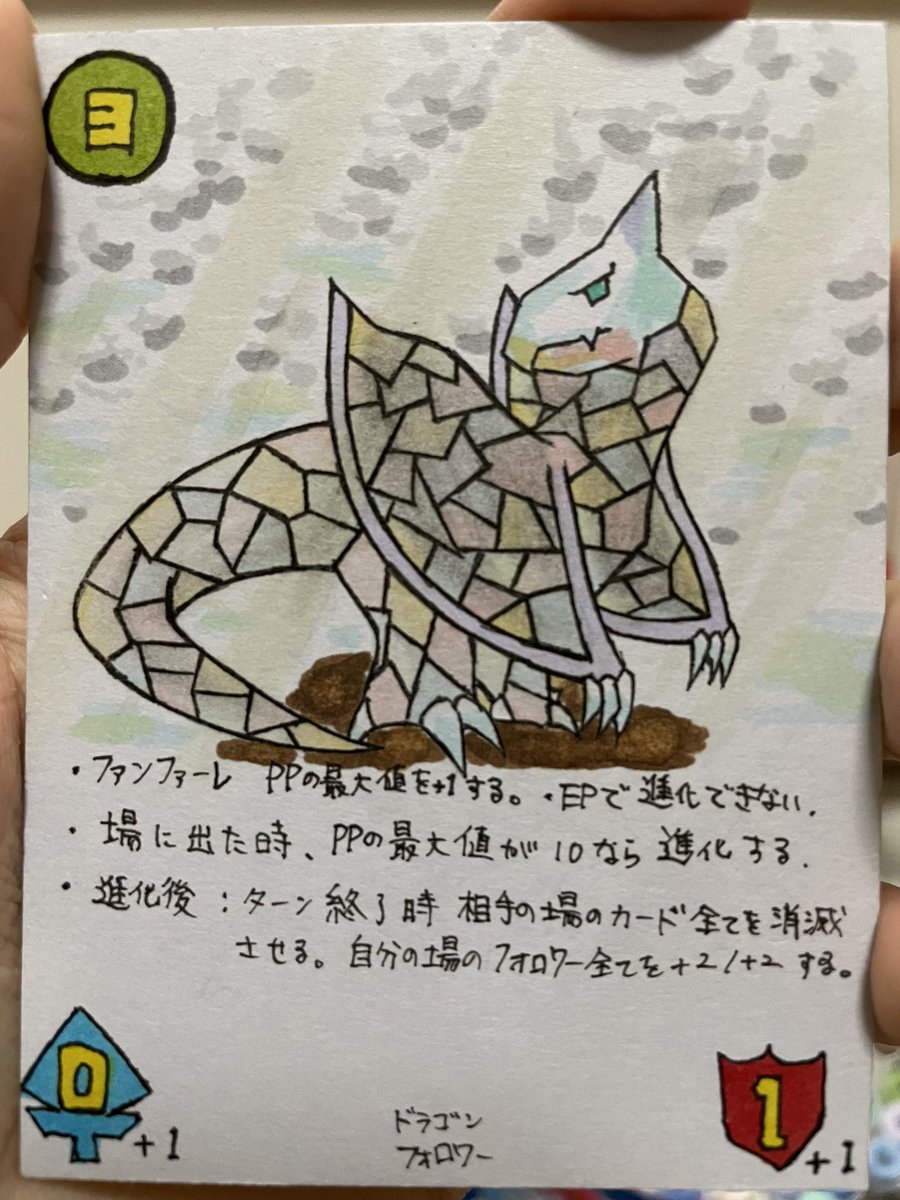 3
・ファンファーレ PPの最大値を+1する。・EPで進化できない.
・場に出た時、PPの最大値が10なら進化する.
・進化後：ターン終了時 相手の場のカード全てを消滅
させる。自分の場のフォロワー全てを+2/+2する。
0
+1
ドラゴン
フォロワー
1
+1